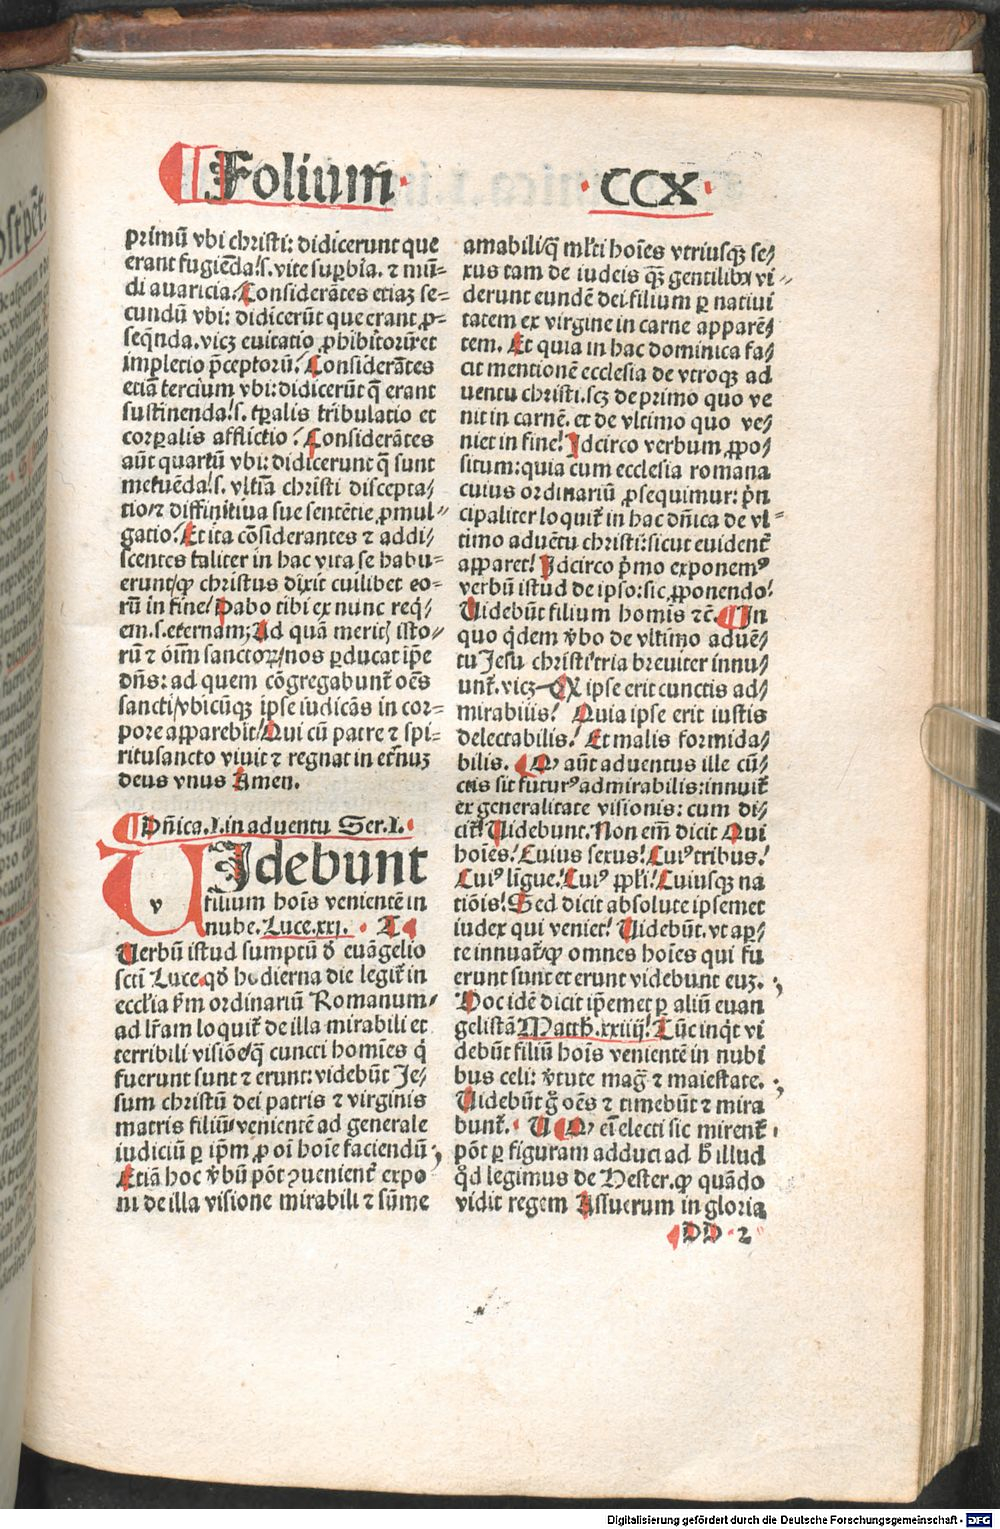 ¶ Folium · CCX ·
primū vbi christi: didicerunt que
erant fugiēda/.s. vite suꝑbia. ⁊ mū-
di auaricia. Considerātes etiaꝫ se-
cundū vbi: didicerūt que erant ꝓ-
seqn̄da. vicꝫ euitatio ꝓhibitorū/et
impletio p̄ceptorū. Considerātes
etiā tercium vbi: didicerūt q̄ erant
sustinenda/.s. tꝑalis tribulatio et
corꝑalis afflictio. Considerātes
aūt quartū vbi: didicerunt q̄ sunt
metuēda/.s. vltīa christi discepta/
tio/⁊ diffinitiua sue sentētie ꝓmul-
gatio. Et ita cōsiderantes ⁊ addi/
scentes taliter in hac vita se habu-
erunt/ꝙ christus dixit cuilibet eo-
rū in fine/ Dabo tibi ex nunc req̇/
em .s. eternam; Ad quā meritꝭ isto/
rū ⁊ oīm sanctoꝝ/nos ꝑducat ip̄e
dn̄s: ad quem cōgregabunt̄ oēs
sancti/vbicūqꝫ ipse iudicās in cor-
pore apparebit/ Qui cū patre ⁊ spi-
ritusancto viuit ⁊ regnat in et̄nuꝫ
deus vnus Amen.
¶ Dn̄ica .I. in aduentu Ser. I. ·
v Idebunt
filium hoīs venientē in
nube. Luce.xxi.
Uerbū istud sumptū ꝺ̄ euāgelio
sctī Luce. qꝺ̄ hodierna die legit̄ in
eccl'ia ẜm ordinariū Romanum/
ad lr̄am loquit̄ de illa mirabili et
terribili visiōe/q̄ cuncti homīes q̇
fuerunt sunt ⁊ erunt: videbūt Je/
sum christū dei patris ⁊ virginis
matris filiū/venientē ad generale
iudiciū ꝑ ip̄m ꝓ oī hoīe faciendū;
Etiā hoc v̄bū pōt ꝯuenient̄ expo
ni de illa visione mirabili ⁊ sūme
amabili/q̄ ml'ti hoīes vtriusqꝫ se/
xus tam de iudeis qꝫ̄ gentilibꝫ vi-
derunt eundē dei filium ꝑ natiui
tatem ex virgine in carne apparē/
tem. Et quia in hac dominica fa/
cit mentionē ecclesia de vtroqꝫ ad
uentu christi. scꝫ de primo quo ve
nit in carnē. et de vltimo quo ve/
niet in fine/ Idcirco verbum ꝓpo/
situm: quia cum ecclesia romana
cuius ordinariū ꝓsequimur: p̄n
cipaliter loquit̄ in hac dn̄ica de vl-
timo aduētu christi: sicut euident̄
apparet/ Idcirco p̄mo exponemꝰ
verbū istud de ipso: sic ꝓponendo/
Uidebūt filium homīs ⁊c̄. ¶ In
quo q̇dem v̄bo de vltimo aduē/
tu Jesu christi/tria breuiter innu/
unt̄. vicꝫ Qꝙ ipse erit cunctis ad/
mirabilis/ Quia ipse erit iustis
delectabilis/ Et malis formida/
bilis. ¶ Qꝙ aūt aduentus ille cū/
ctis sit futurꝰ admirabilis: innuit̄
ex generalitate visionis: cum di/
cit̄/ Uidebunt. Non em̄ dicit Qui
hoīes/ Cuius sexus/ Cuiꝰ tribus/
Cuiꝰ līgue/ Cuiꝰ ppl'i/ Cuiusqꝫ na
tiōis/ Sed dicit absolute ipsemet
iudex qui veniet/ Uidebūt. vt aꝑ/
te innuat̄/ꝙ omnes hoīes qui fu
erunt sunt et erunt videbunt euꝫ. ;
Hoc idē dicit ip̄emet ꝑ aliū euan
gelistā Matth̄. xxiiij/ Tūc inq̇t vi
debūt filiū hoīs venientē in nubi
bus celi: v̄tute maḡ ⁊ maiestate. ;
Uidebūt g̊ oēs ⁊ timebūt ⁊ mira
bunt̄. Qꝙ ei electi sic mirent̄
pōt ꝑ figuram adduci ad h̄ illud
qꝺ̄ legimus de Hester. ꝙ quādo
vidit regem Assuerum in gloria
DD 2
Digitalisierung gefördert durch die Deutsche Forschungsgemeinschaft - DFG